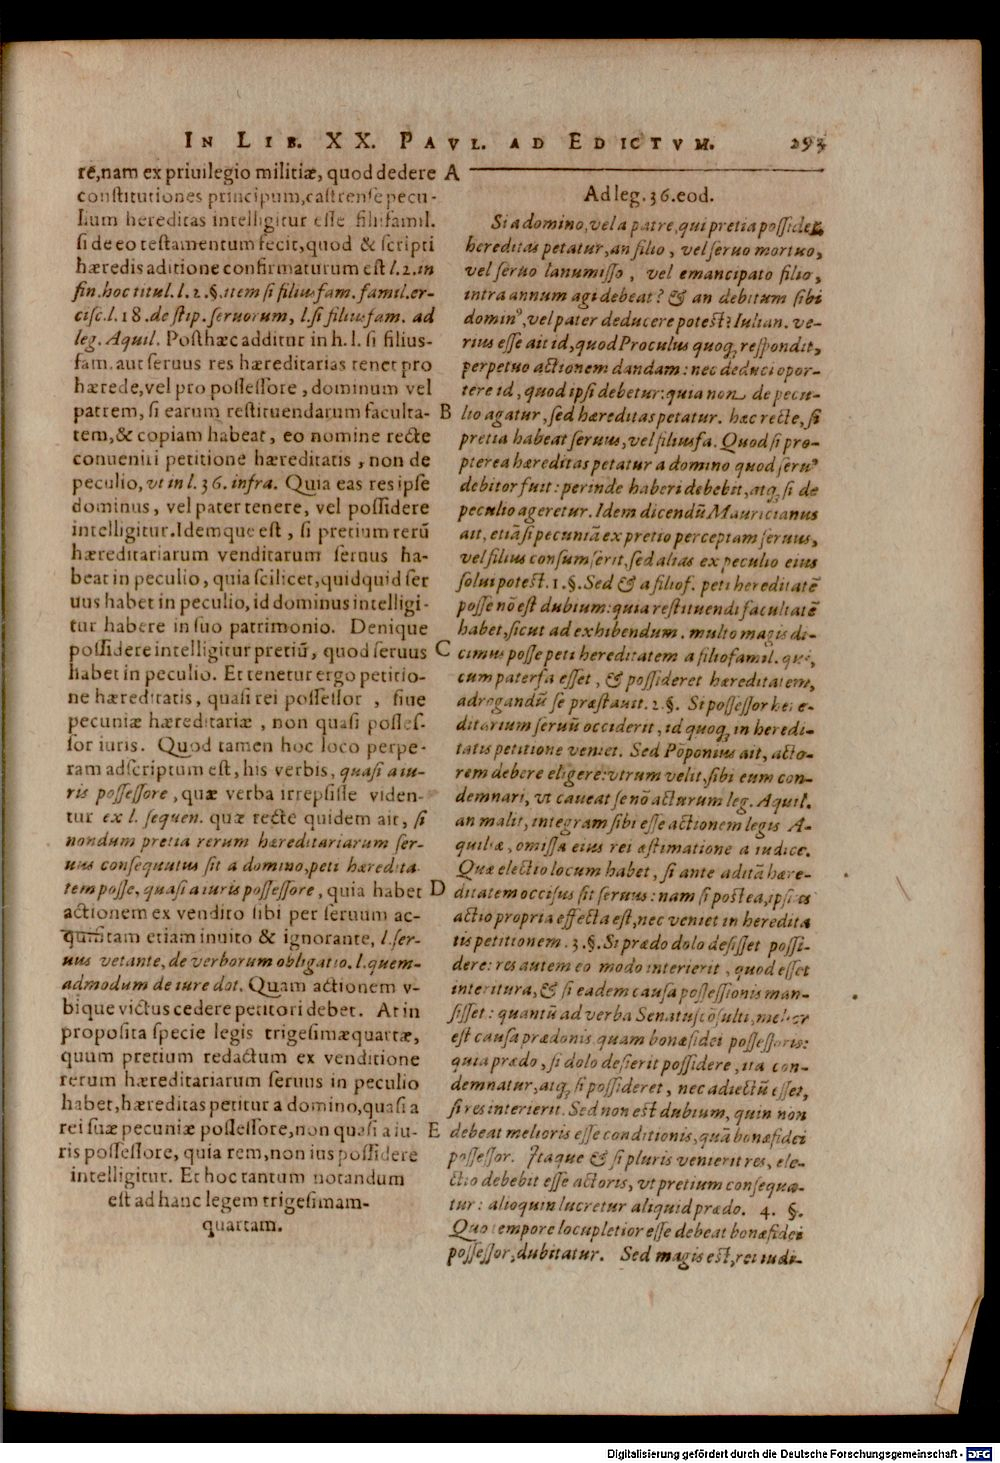 IN LIB. XX. PAVL. AD EDICTVM. 293
re,nam ex priuilegio militiæ, quod dedere A
constitutiones principum,castrense pecu-
lium hereditas intelligitur esse filifamil.
si de eo testamentum fecit,quod & scripti
hæredis aditione confirmaturum est l. 2. in
fin. hoc titul. l. 2. §. item si filiusfam. famil. er-
cisc. l. 18. de stip. seruorum, l. si filiusfam. ad
leg. Aquil. Posthæc additur in h. l. si filius-
fam. aut seruus res hæreditarias tenet pro
hærede,vel pro possessore, dominum vel
patrem, si earum restituendarum faculta- B
tem,& copiam habeat, eo nomine recte
conueniri petitione hæreditatis, non de
peculio, vt in l. 36. infra. Quia eas res ipse
dominus, vel pater tenere, vel possidere
intelligitur. Idemque est, si pretium rerū
hæreditariarum venditarum seruus ha-
beat in peculio, quia scilicet,quidquid ser
uus habet in peculio, id dominus intelligi-
tur habere in suo patrimonio. Denique
possidere intelligitur pretiū, quod seruus C
habet in peculio. Et tenetur ergo petitio-
ne hæreditatis, quasi rei possessor, siue
pecuniæ hæreditariæ, non quasi posses-
sor iuris. Quod tamen hoc loco perpe-
ram adscriptum est, his verbis, quasi a iu-
ris possessore, quæ verba irrepsisse viden-
tur ex l. sequen. quæ recte quidem ait, si
nondum pretia rerum hæreditariarum ser-
uus consequutus sit a domino,peti hæredita-
tem posse, quasi a iuris possessore, quia habet D
actionem ex vendito sibi per seruum ac-
quisitam etiam inuito & ignorante, l. ser-
uus vetante, de verborum obligatio. l. quem-
admodum de iure dot. Quam actionem v-
bique victus cedere petitori debet. At in
proposita specie legis trigesimæquartæ,
quum pretium redactum ex venditione
rerum hæreditariarum seruus in peculio
habet,hæreditas petitur a domino,quasi a
rei suæ pecuniæ possessore,non quasi a iu- E
ris possessore, quia rem,non ius possidere
intelligitur. Et hoc tantum notandum
est ad hanc legem trigesimam-
quartam.
Ad leg. 36. eod.
Si a domino, vel a patre, qui pretia possidet,
hereditas petatur, an filio, vel seruo mortuo,
vel seruo lanumisso, vel emancipato filio,
intra annum agi debeat? & an debitum sibi
domin⁹, vel pater deducere potest? Iulian. ve-
rius esse ait id, quod Proculus quoq; respondit,
perpetuo actionem dandam: nec deduci opor-
tere id, quod ipsi debetur: quia non de pecu-
lio agatur, sed hæreditas petatur. hæc recte, si
pretia habeat seruus, vel filiusfa. Quod si pro-
pterea hæreditas petatur a domino quod seru⁹
debitor fuit: perinde haberi debebit, atq; si de
peculio ageretur. Idem dicendū Mauricianus
ait, etiā si pecuniā ex pretio perceptam seruus,
vel filius consumserit, sed alias ex peculio eius
solui potest. 1. §. Sed & a filiof. peti hereditatē
posse nō est dubium: quia restituendi facultatē
habet, sicut ad exhibendum. multo magis di-
cimus posse peti hereditatem a filiofamil. qui,
cum paterfa esset, & possideret hæreditatem,
adrogandū se præstauit. 2. §. Si possessor here-
ditarium seruū occiderit, id quoq; in heredi-
tatis petitione veniet. Sed Pōponius ait, acto-
rem debere eligere: vtrum velit, sibi eum con-
demnari, vt caueat se nō acturum leg. Aquil.
an malit, integram sibi esse actionem legis A-
quiliæ, omissa eius rei æstimatione a iudice.
Quæ electio locum habet, si ante aditā hære-
ditatem occisus sit seruus: nam si postea, ipsius
actio propria effecta est, nec veniet in heredita
tis petitionem. 3. §. Si prædo dolo desisset possi-
dere: res autem eo modo interierit, quod esset
interitura, & si eadem causa possessionis man-
sisset: quantū ad verba Senatuscōsulti, melior
est causa prædonis quam bonæfidei possessoris:
quia prædo, si dolo desierit possidere, ita con-
demnatur, atq; si possideret, nec adiectū esset,
si res interierit. Sed non est dubium, quin non
debeat melioris esse conditionis, quā bonæfidei
possessor. Itaque & si pluris venierit res, ele-
ctio debebit esse actoris, vt pretium consequa-
tur: alioquin lucretur aliquid prædo. 4. §.
Quo tempore locupletior esse debeat bonæfidei
possessor, dubitatur. Sed magis est, rei iudi-
Digitalisierung gefördert durch die Deutsche Forschungsgemeinschaft - DFG